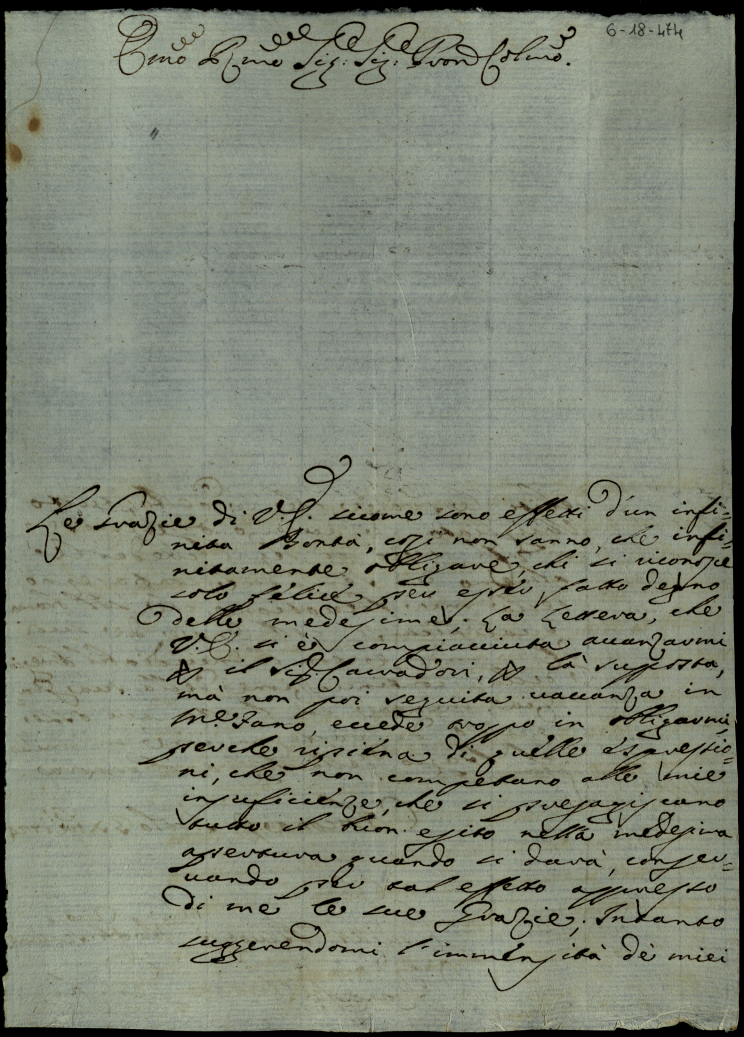 6-18-474
Emo Rmo Sig: Sig: Pron Colmo.
Le Grazie di V.E. sicome sono effetti d'un infi=
nita Bontà, cosi non sanno, che infi=
nitamente obligare, chi si riconosce
solo felice per esser fatto degno
delle medesime. La Lettera, che
V.E. si è compiacciuta avanzarmi
il Sig. Cavadori, la supposta,
mà non poi seguita vacanza in
Fano, eccede troppo in obligarmi,
perche ripiena di quelle espressio=
ni, che non competano alle mie
insuficienze, che si presagiscano
tutto il bion esito nella medesima
apertura quando si darà, conser=
vando per tal effetto appresso
di me le sue Grazie; Intanto
suggerendomi l'immensità de miei